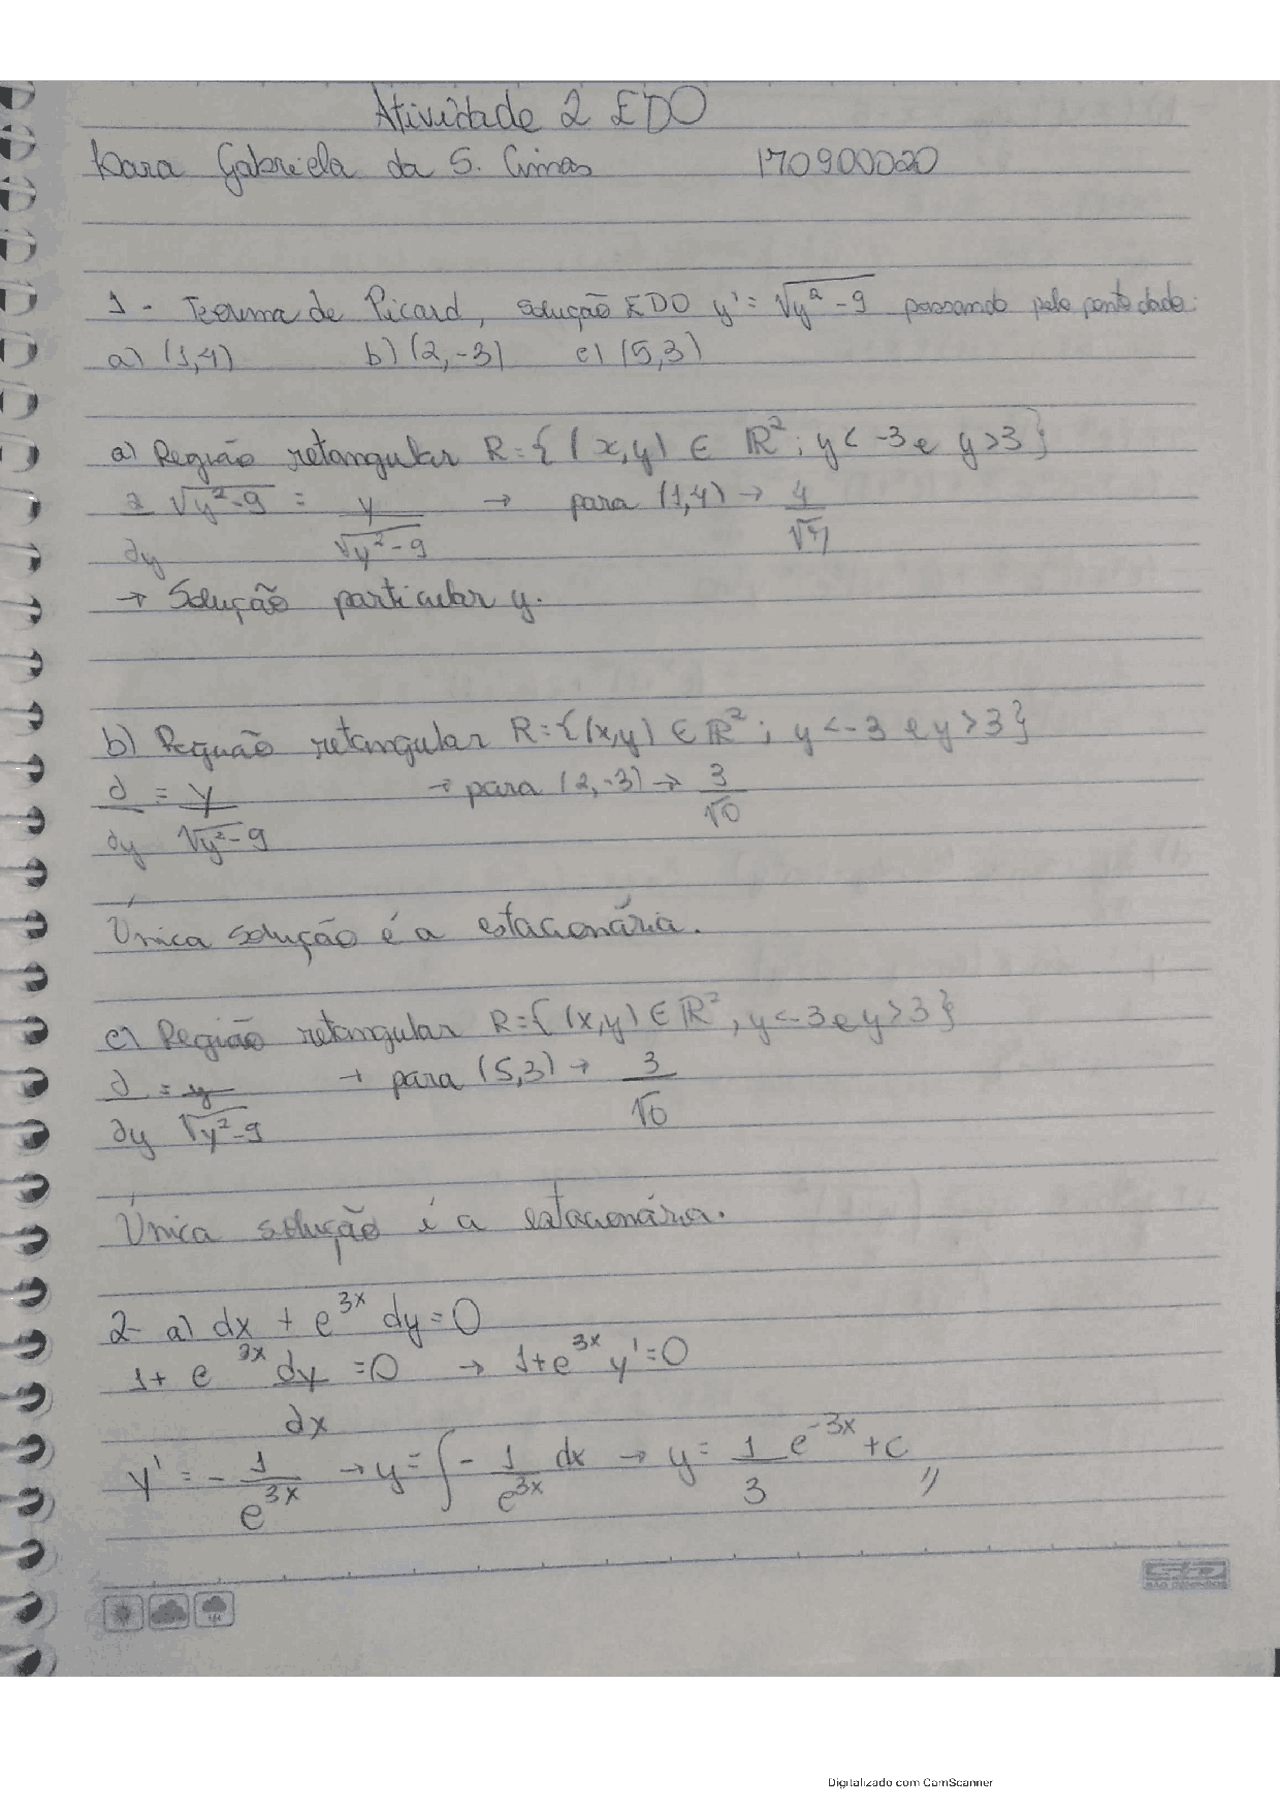 Atividade 2 EDO
Gabriela da S. 170900020
1 - Teorema de Picard, solução EDO y' = √(y² - 9) passando pelo ponto dado:
a) (1,4) b) (2,-3) c) (5,3)
a) Região retangular R = { (x,y) ∈ ℝ²; y < -3 e y > 3 }
∂/∂y √(y² - 9) = y/√(y² - 9) → para (1,4) → 4/√7
→ Solução particular y.
b) Região retangular R = {(x,y) ∈ ℝ²; y < -3 e y > 3}
∂/∂y = y/√(y² - 9) → para (2,-3) → 3/√0
Única solução é a estacionária.
c) Região retangular R = { (x,y) ∈ ℝ², y < -3 e y > 3 }
∂/∂y = y/√(y² - 9) → para (5,3) → 3/√0
Única solução é a estacionária.
2- a) dx + e^3x dy = 0
1 + e^3x dy/dx = 0 → 1 + e^3x y' = 0
y' = - 1/e^3x → y = ∫ - 1/e^3x dx → y = 1/3 e^-3x + c //
Digitalizado com CamScanner